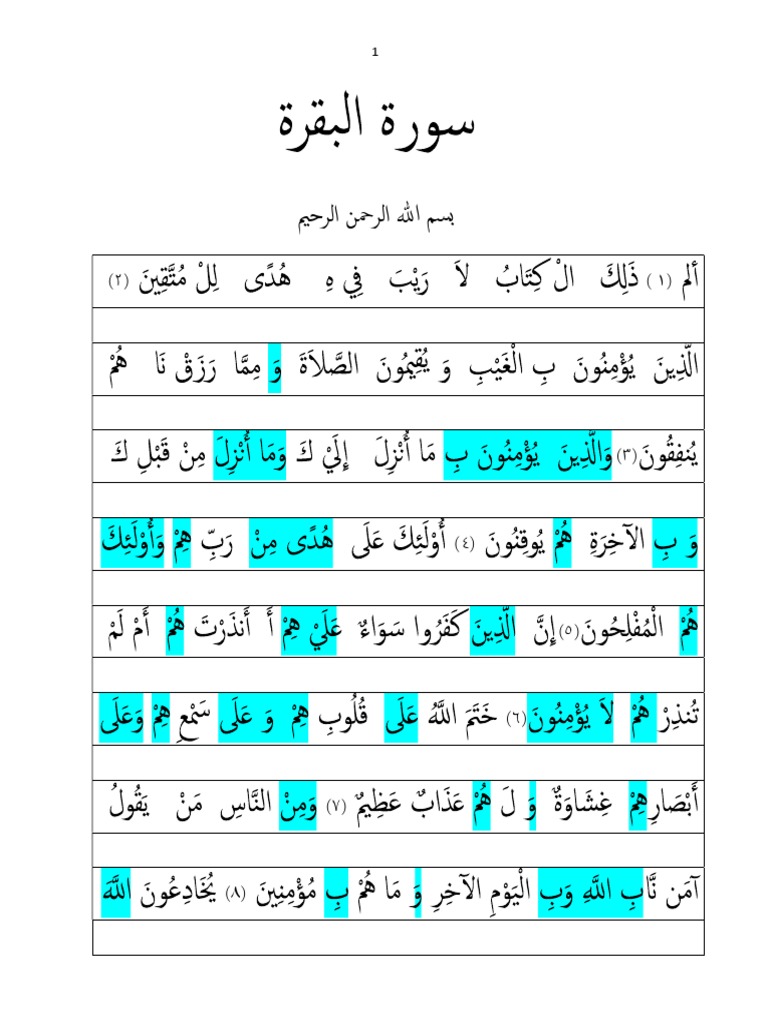 1
سورة البقرة
بسم الله الرحمن الرحيم
ألم (١) ذَلِكَ الْ كِتَابُ لاَ رَيْبَ فِي هِ هُدًى لِلْ مُتَّقِينَ (٢)
الَّذِينَ يُؤْمِنُونَ بِ الْغَيْبِ وَ يُقِيمُونَ الصَّلاَةَ وَ مِمَّا رَزَقْ نَا هُمْ
يُنفِقُونَ(٣) وَالَّذِينَ يُؤْمِنُونَ بِ مَا أُنْزِلَ إِلَيْ كَ وَمَا أُنْزِلَ مِنْ قَبْلِ كَ
وَ بِ الآخِرَةِ هُمْ يُوقِنُونَ (٤) أُوْلَئِكَ عَلَى هُدًى مِنْ رَبِّ هِمْ وَأُوْلَئِكَ
هُمْ الْمُفْلِحُونَ(٥)إِنَّ الَّذِينَ كَفَرُوا سَوَاءٌ عَلَيْ هِمْ أَ أَنذَرْتَ هُمْ أَمْ لَمْ
تُنذِرْ هُمْ لاَ يُؤْمِنُونَ(٦) خَتَمَ اللَّهُ عَلَى قُلُوبِ هِمْ وَ عَلَى سَمْعِ هِمْ وَعَلَى
أَبْصَارِهِمْ غِشَاوَةٌ وَ لَ هُمْ عَذَابٌ عَظِيمٌ (٧) وَمِنْ النَّاسِ مَنْ يَقُولُ
آمَن نَّابِ اللَّهِ وَبِ الْيَوْمِ الآخِرِ وَ مَا هُمْ بِ مُؤْمِنِينَ (٨) يُخَادِعُونَ اللَّهَ